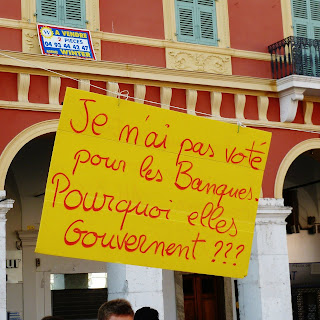 A VENDRE
2 PIECES
04 93 44 42 47
WINTER
Je n'ai pas voté
pour les Banques.
Pourquoi elles
Gouvernent ???